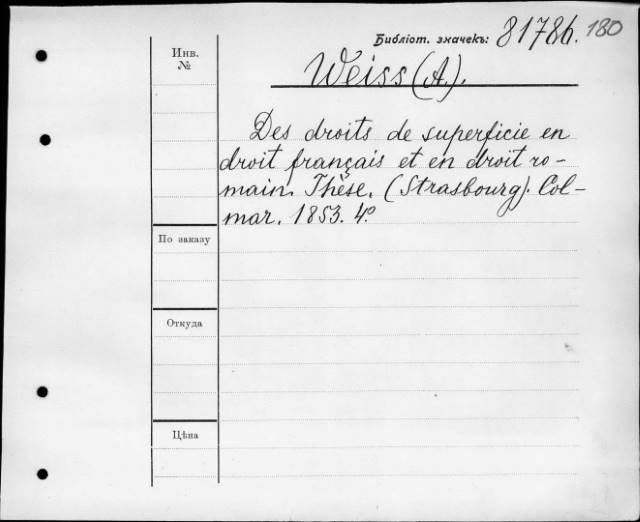 Библіот. значекъ: 8178b. 180
Инв.
№
Weiss (A.).
Des droits de superficie en
droit français et en droit ro-
main. Thèse. (Strasbourg). Col-
mar. 1853. 4º
По заказу
Откуда
Цѣна